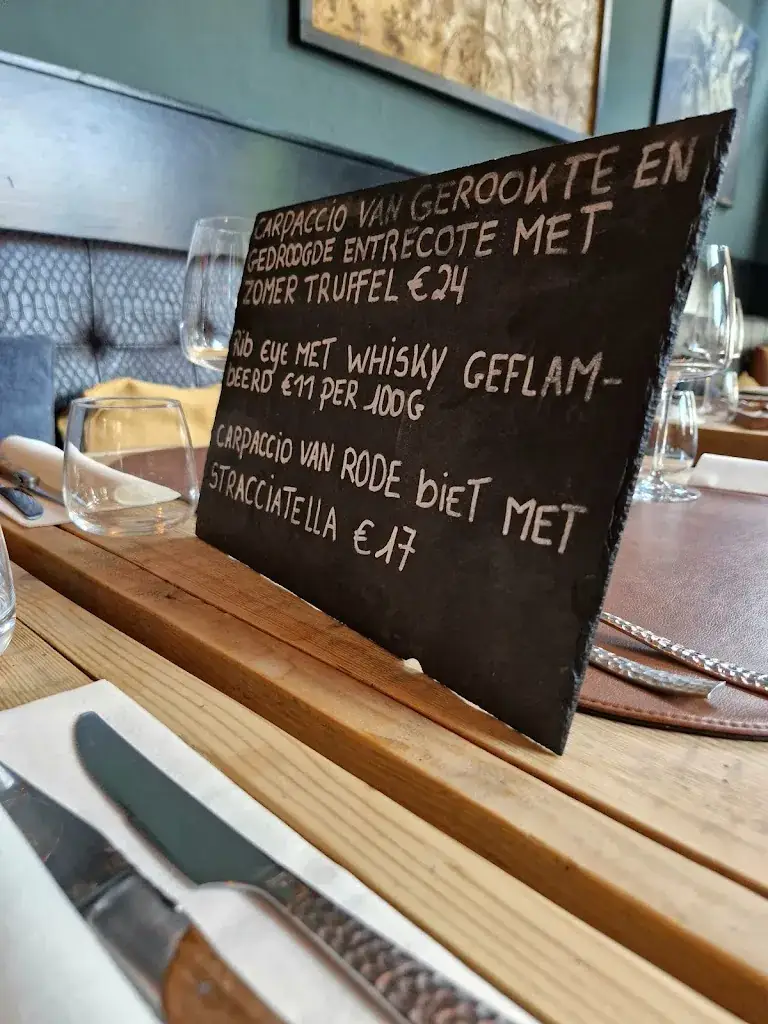 CARPACCIO VAN GEROOKTE EN
GEDROOGDE ENTRECOTE MET
ZOMER TRUFFEL €24
Rib eye MET WHISKY GEFLAM-
BEERD €11 PER 100G
CARPACCIO VAN RODE biET MET
STRACCIATELLA €17